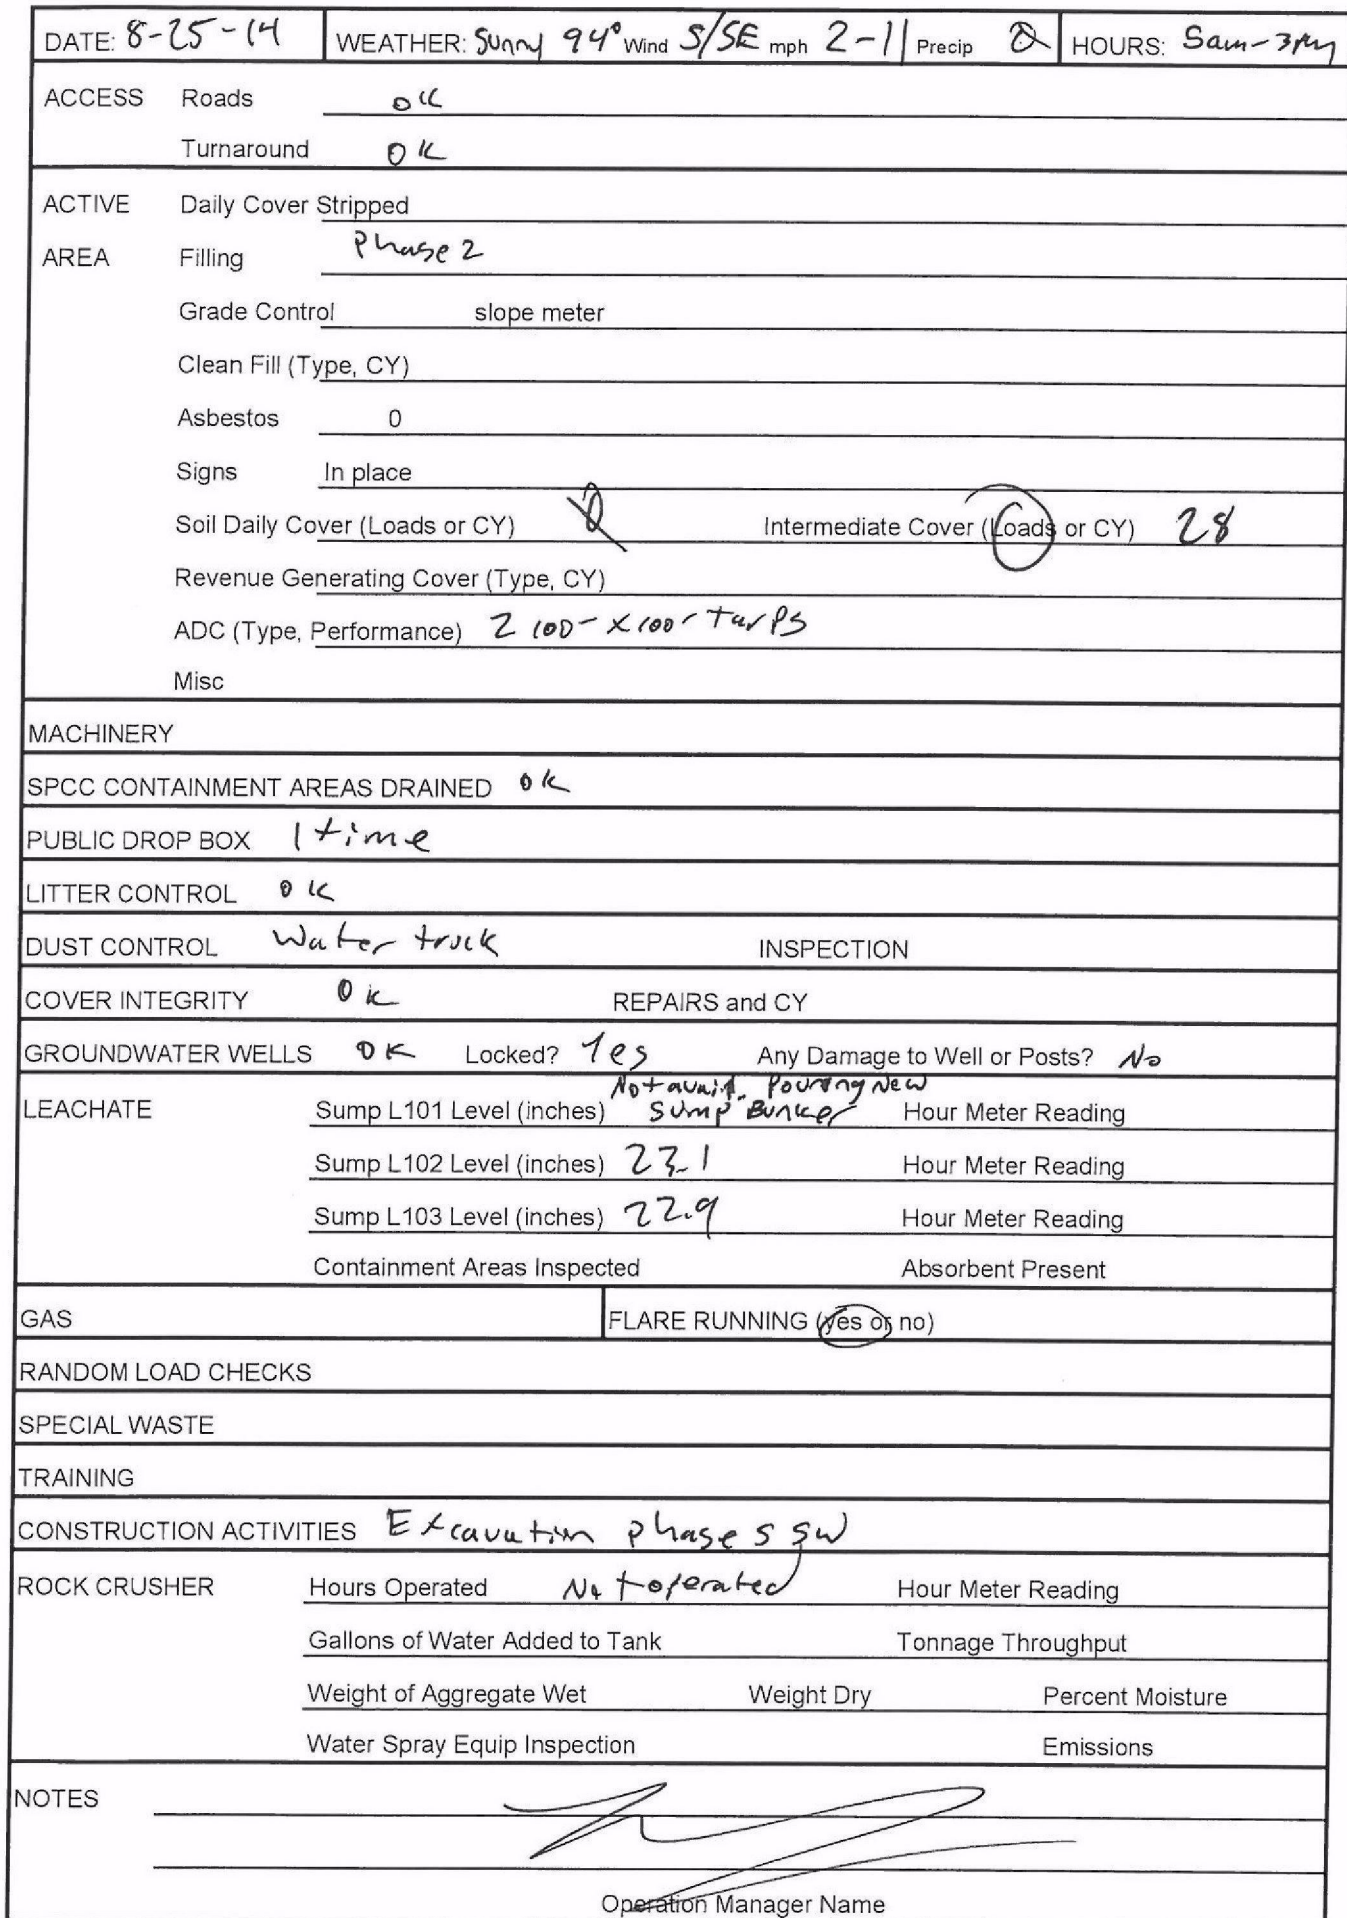 DATE: 8-25-14 WEATHER: Sunny 94° Wind S/SE mph 2-11 Precip 0 HOURS: 5am-3pm
ACCESS Roads OK
Turnaround OK
ACTIVE Daily Cover Stripped
AREA Filling Phase 2
Grade Control slope meter
Clean Fill (Type, CY)
Asbestos 0
Signs In place
Soil Daily Cover (Loads or CY) 0 Intermediate Cover (Loads or CY) 28
Revenue Generating Cover (Type, CY)
ADC (Type, Performance) 2 100-x100' Tarps
Misc
MACHINERY
SPCC CONTAINMENT AREAS DRAINED OK
PUBLIC DROP BOX 1 time
LITTER CONTROL OK
DUST CONTROL Water truck INSPECTION
COVER INTEGRITY OK REPAIRS and CY
GROUNDWATER WELLS OK Locked? Yes Any Damage to Well or Posts? No
Not avail. Pouring New
LEACHATE Sump L101 Level (inches) Sump Bunker Hour Meter Reading
Sump L102 Level (inches) 23.1 Hour Meter Reading
Sump L103 Level (inches) 22.9 Hour Meter Reading
Containment Areas Inspected Absorbent Present
GAS FLARE RUNNING (yes or no)
RANDOM LOAD CHECKS
SPECIAL WASTE
TRAINING
CONSTRUCTION ACTIVITIES Excavation phase 5 SW
ROCK CRUSHER Hours Operated Not operated Hour Meter Reading
Gallons of Water Added to Tank Tonnage Throughput
Weight of Aggregate Wet Weight Dry Percent Moisture
Water Spray Equip Inspection Emissions
NOTES
Operation Manager Name